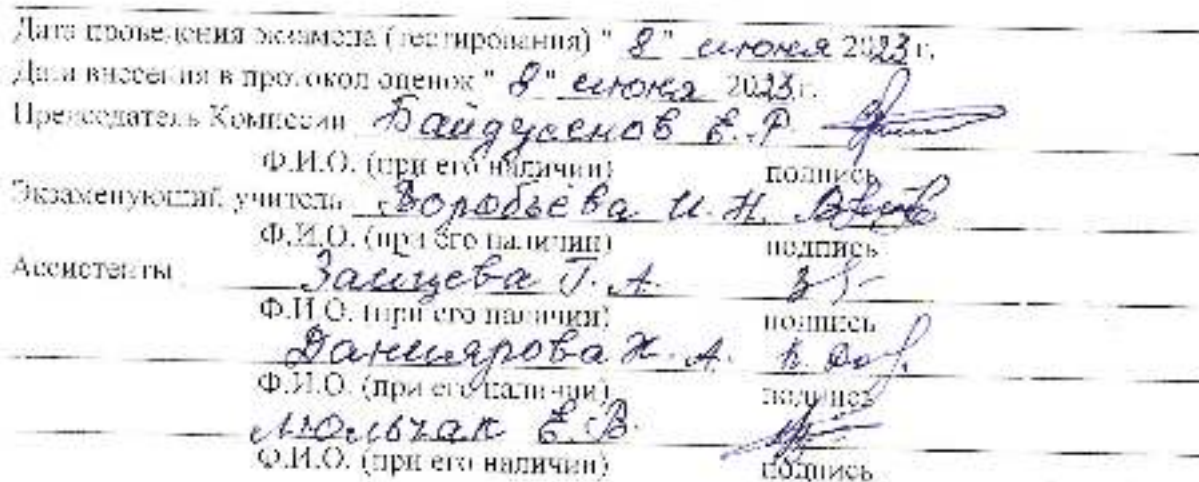 Дата проведения экзамена (тестирования) " 8 " июня 2023 г.
Дата внесения в протокол оценок " 8 " июня 2023 г.
Председатель Комиссии Байдусенов Е. Р.
Ф.И.О. (при его наличии) подпись
Экзаменующий учитель Воробьева И. Н.
Ф.И.О. (при его наличии) подпись
Ассистенты Заицева Г. А.
Ф.И.О. (при его наличии) подпись
Даниярова Ж. А.
Ф.И.О. (при его наличии) подпись
Мольчак Е. В.
Ф.И.О. (при его наличии) подпись